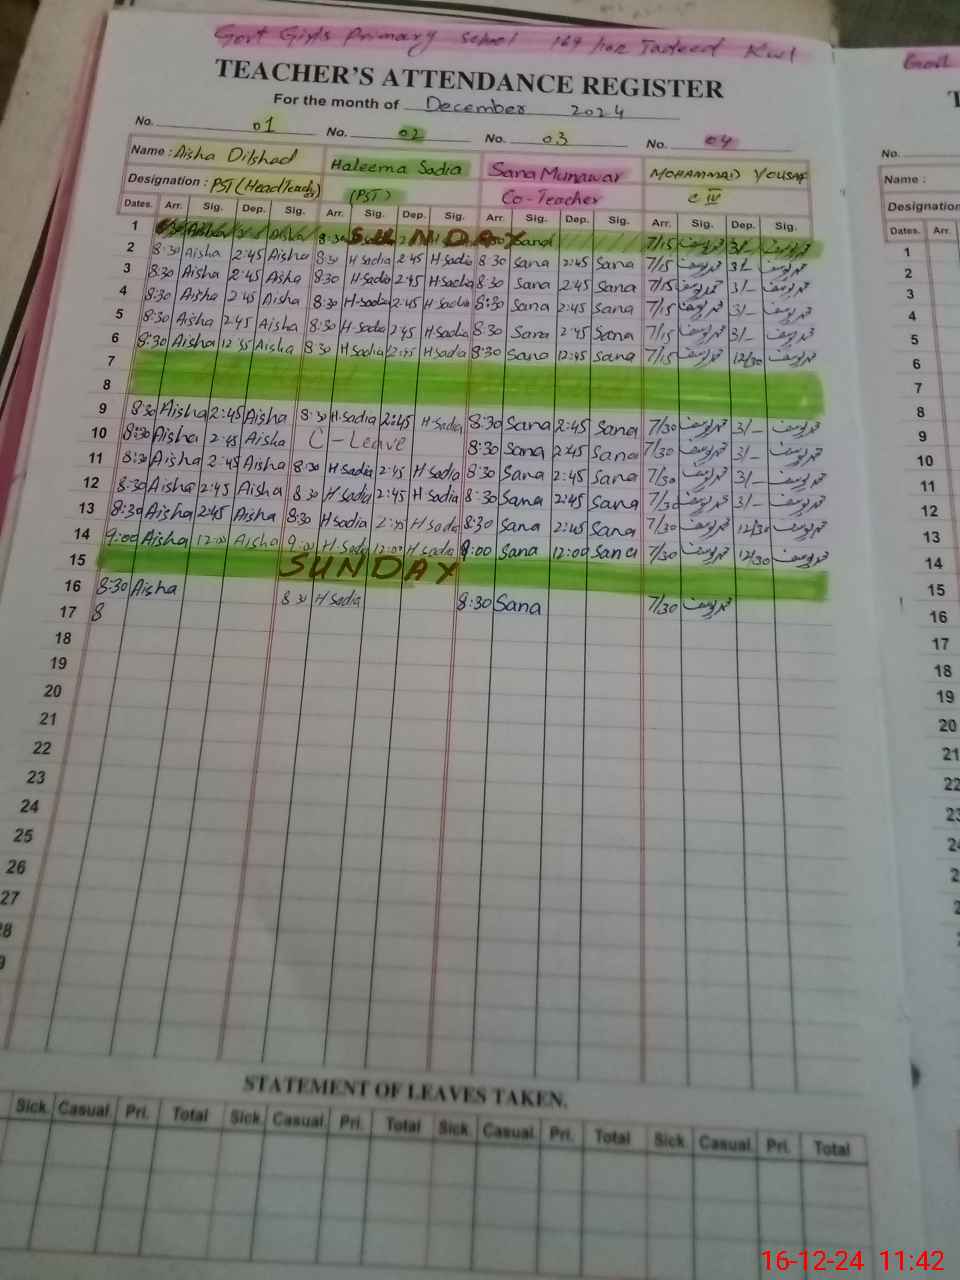 Govt Girls Primary School 169 Jadeed Kwl
TEACHER'S ATTENDANCE REGISTER
For the month of December 2024
No. 01 No. 02 No. 03 No. 04 No.
Name : Aisha Dilshad Haleema Sadia Sana Munawar MOHAMMAD YOUSAF Name :
Designation : PST (Head Teacher) (PST) Co-Teacher C IV Designation
Dates. Arr. Sig. Dep. Sig. Arr. Sig. Dep. Sig. Arr. Sig. Dep. Sig. Arr. Sig. Dep. Sig. Dates. Arr.
1 SUNDAY 7/15 محمد یوسف 3/- محمد یوسف 1
2 8:30 Aisha 2:45 Aisha 8:30 H Sadia 2:45 H Sadia 8:30 Sana 2:45 Sana 7/15 محمد یوسف 3/- محمد یوسف 2
3 8:30 Aisha 2:45 Aisha 8:30 H Sadia 2:45 H Sadia 8:30 Sana 2:45 Sana 7/15 محمد یوسف 3/- محمد یوسف 3
4 8:30 Aisha 2:45 Aisha 8:30 H-Sadia 2:45 H Sadia 8:30 Sana 2:45 Sana 7/15 محمد یوسف 3/- محمد یوسف 4
5 8:30 Aisha 2:45 Aisha 8:30 H Sadia 2:45 H Sadia 8:30 Sana 2:45 Sana 7/15 محمد یوسف 3/- محمد یوسف 5
6 8:30 Aisha 12:45 Aisha 8:30 H Sadia 12:45 H Sadia 8:30 Sana 12:45 Sana 7/15 محمد یوسف 12/30 محمد یوسف 6
7 7
8 8
9 8:30 Aisha 2:45 Aisha 8:30 H.Sadia 2:45 H.Sadia 8:30 Sana 2:45 Sana 7/30 محمد یوسف 3/- محمد یوسف 9
10 8:30 Aisha 2:45 Aisha C-Leave 8:30 Sana 2:45 Sana 7/30 محمد یوسف 3/- محمد یوسف 10
11 8:30 Aisha 2:45 Aisha 8:30 H Sadia 2:45 H Sadia 8:30 Sana 2:45 Sana 7/30 محمد یوسف 3/- محمد یوسف 11
12 8:30 Aisha 2:45 Aisha 8:30 H Sadia 2:45 H Sadia 8:30 Sana 2:45 Sana 7/30 محمد یوسف 3/- محمد یوسف 12
13 8:30 Aisha 2:45 Aisha 8:30 H Sadia 2:45 H Sadia 8:30 Sana 2:45 Sana 7/30 محمد یوسف 12/30 محمد یوسف 13
14 9:00 Aisha 12:00 Aisha 9:00 H Sadia 12:00 H Sadia 9:00 Sana 12:00 Sana 7/30 محمد یوسف 12/30 محمد یوسف 14
15 SUNDAY 15
16 8:30 Aisha 8:30 H Sadia 8:30 Sana 7/30 محمد یوسف 16
17 8 17
18 18
19 19
20 20
21 21
22 22
23
24
25
26
27
STATEMENT OF LEAVES TAKEN.
Sick. Casual. Pri. Total Sick. Casual. Pri. Total Sick. Casual. Pri. Total Sick. Casual. Pri. Total
16-12-24 11:42